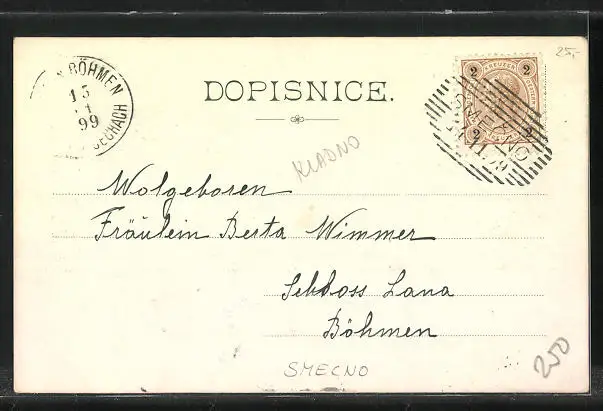 BÖHMEN
13
99
25,-
DOPISNICE.
2 KREUZER 2
2 2
SMEČNO
KLADNO
Wolgeboren
Fräulein Berta Wimmer
Schloss Lana
Böhmen
SMECNO
250